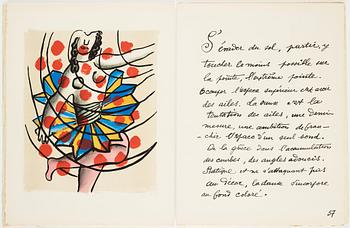 S'évader du sol, partir, y
toucher le moins possible sur
la pointe, l'extrême pointe.
Occuper l'espace supérieur c'est avoir
des ailes. La danse est la
tentation des ailes, une demi
mesure, une ambition de fran-
chir l'espace d'un seul bond.
De la grâce dans l'accumulation
des courbes, des angles adoucis.
Statique et ne s'attaquant pas
au décor, la danse s'incorpore
au fond coloré.
57